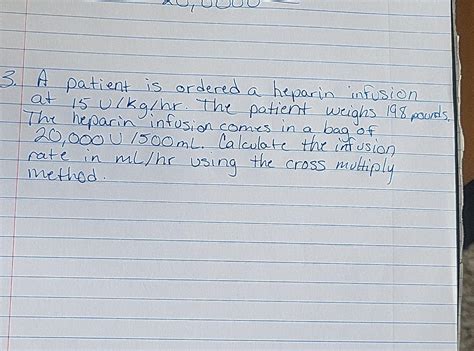 20,0000
3. A patient is ordered a heparin infusion
at 15 U/kg/hr. The patient weighs 198 pounds.
The heparin infusion comes in a bag of
20,000 U/500mL. Calculate the infusion
rate in mL/hr using the cross multiply
method.